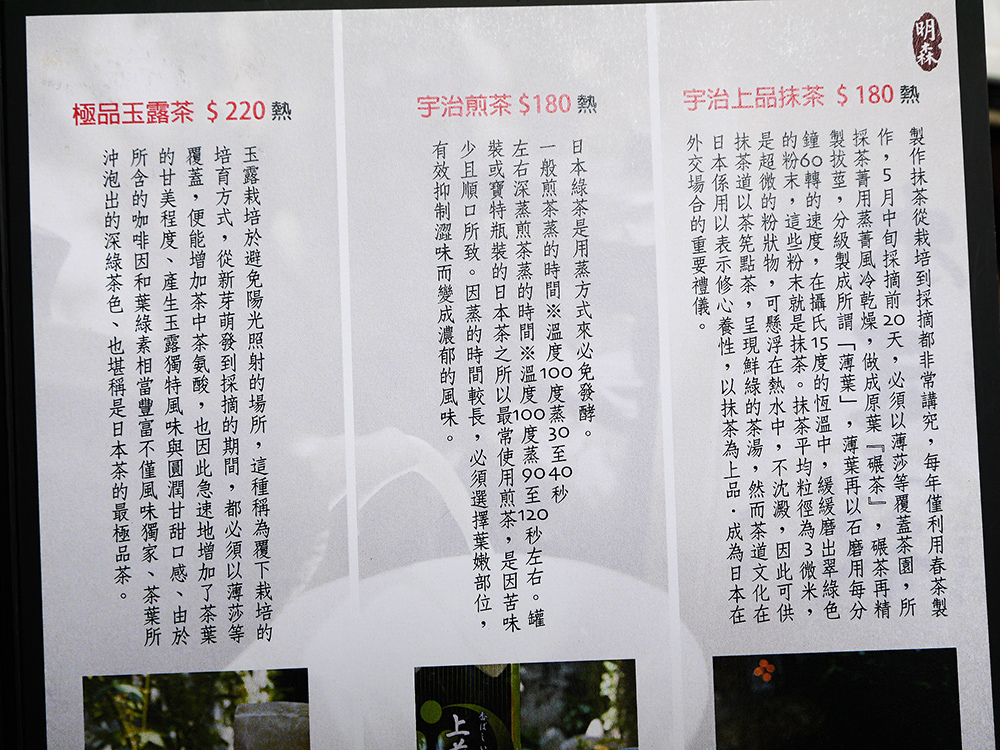 明森
宇治上品抹茶 $180 熱
製作抹茶從栽培到採摘都非常講究，每年僅利用春茶製
作，5月中旬採摘前20天，必須以薄莎等覆蓋茶園，所
採茶菁用蒸菁風冷乾燥，做成原葉『碾茶』，碾茶再精
製拔莖，分級製成所謂「薄葉」，薄葉再以石磨用每分
鐘60轉的速度，在攝氏15度的恆溫中，緩緩磨出翠綠色
的粉末，這些粉末就是抹茶。抹茶平均粒徑為3微米，
是超微的粉狀物，可懸浮在熱水中，不沈澱，因此可供
抹茶道以茶筅點茶，呈現鮮綠的茶湯，然而茶道文化在
日本係用以表示修心養性，以抹茶為上品．成為日本在
外交場合的重要禮儀。
宇治煎茶 $180 熱
日本綠茶是用蒸方式來必免發酵。
一般煎茶蒸的時間※溫度100度蒸30至40秒
左右深蒸煎茶蒸的時間※溫度100度蒸90至120秒左右。罐
裝或寶特瓶裝的日本茶之所以最常使用煎茶，是因苦味
少且順口所致。因蒸的時間較長，必須選擇葉嫩部位，
有效抑制澀味而變成濃郁的風味。
極品玉露茶 $220 熱
玉露栽培於避免陽光照射的場所，這種稱為覆下栽培的
培育方式，從新芽萌發到採摘的期間，都必須以薄莎等
覆蓋，便能增加茶中茶氨酸，也因此急速地增加了茶葉
的甘美程度、產生玉露獨特風味與圓潤甘甜口感、由於
所含的咖啡因和葉綠素相當豐富不僅風味獨家、茶葉所
沖泡出的深綠茶色、也堪稱是日本茶的最極品茶。
上